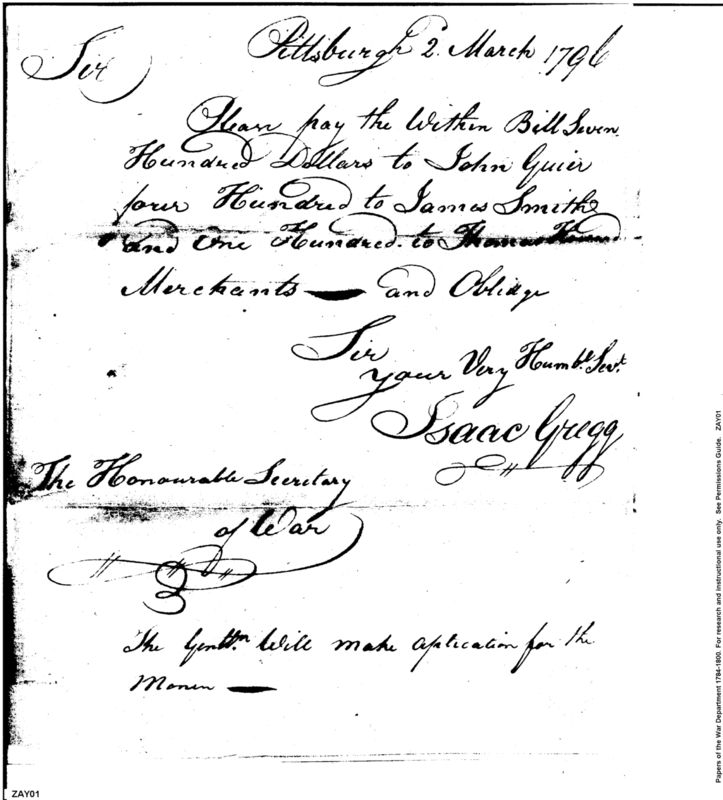 Pittsburgh 2. March 1796
Sir
Please pay the Within Bill Seven
Hundred Dollars to John Guier
four Hundred to James Smith
and One Hundred. to Thomas
Merchants — and Oblidge
Sir
your Very Humbl. Servt.
Isaac Gregg
The Honourable Secretary
of War
3
The Gentlmn. Will make application for the
Money —
Papers of the War Department 1784-1800. For research and instructional use only. See Permissions Guide. ZAY01
ZAY01